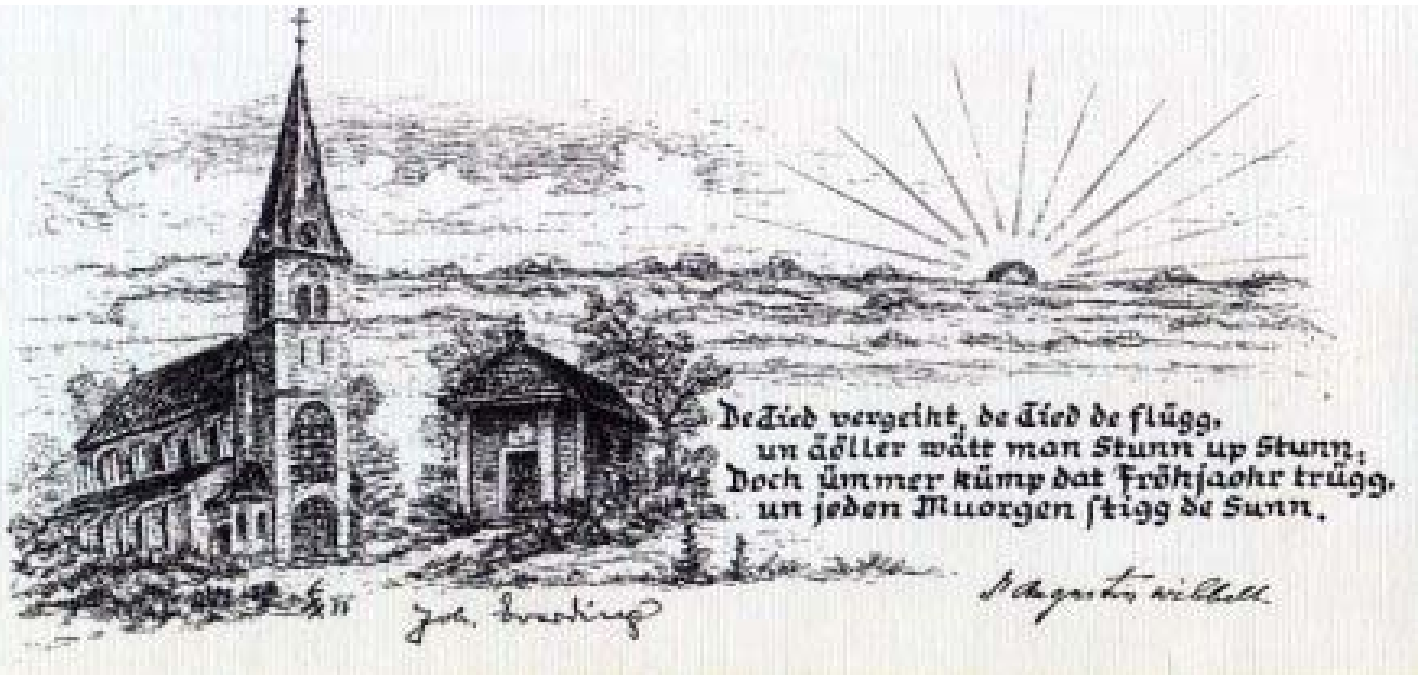 De Tied vergeiht, de Tied de flügg,
un äöller wätt man Stunn up Stunn;
Doch ümmer kümp dat Fröhjaohr trügg,
un jeden Muorgen stigg de Sunn.
Joh.